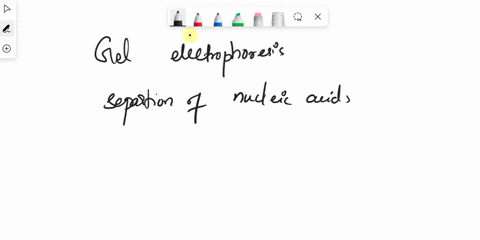 Gel electrophoresis
separtion of nucleic acids